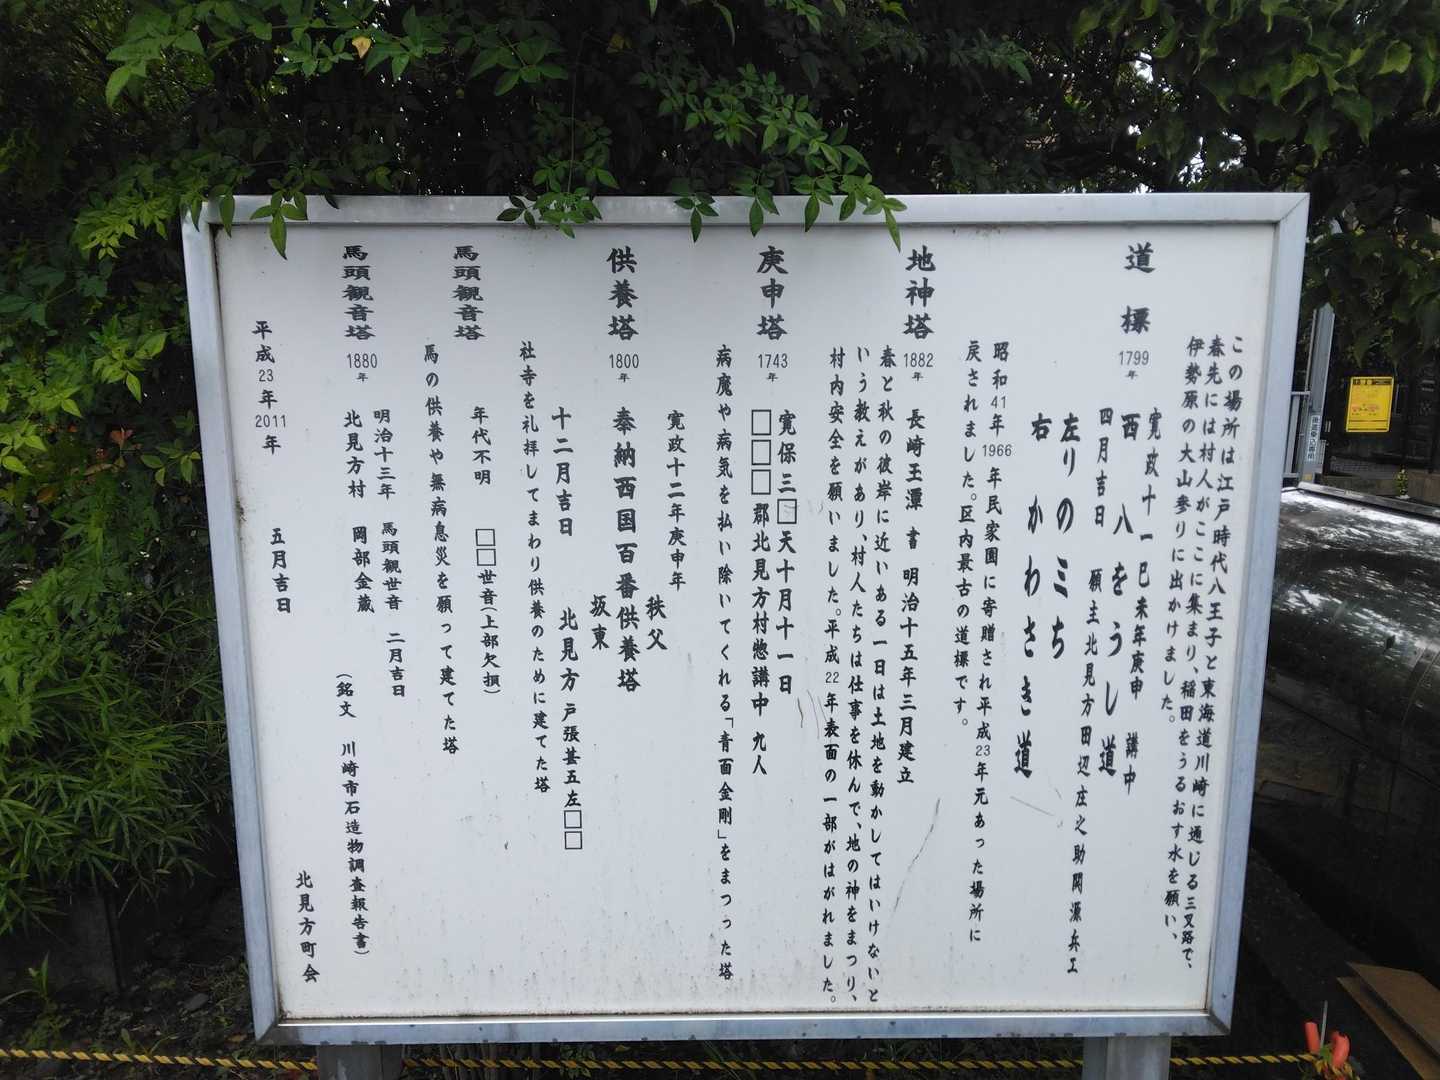 この場所は江戸時代八王子と東海道川崎に通じる三叉路で、
春先には村人がここに集まり、稲田をうるおす水を願い、
伊勢原の大山参りに出かけました。
道標
1799年
寛政十一巳未年庚申 講中
西 八をうし道
四月吉日 願主北見方田辺庄之助
左りの三ち
右 かわさき道
昭和41年1966年民家園に寄贈され平成23年元あった場所に
戻されました。区内最古の道標です。
地神塔
1882年
長崎玉潭 書 明治十五年三月建立
春と秋の彼岸に近いある一日は土地を動かしてはいけないと
いう教えがあり、村人たちは仕事を休んで、地の神をまつり、
村内安全を願いました。平成22年表面の一部がはがれました。
庚申塔
1743年
寛保三□天十月十一日
□□□郡北見方村惣講中 九人
病魔や病気を払い除いてくれる「青面金剛」をまつった塔
供養塔
1800年
寛政十二年庚申年
秩父
奉納西国百番供養塔
坂東
十二月吉日 北見方 戸張甚五左□□
社寺を礼拝してまわり供養のために建てた塔
馬頭観音塔
年代不明 □□世音(上部欠損)
馬の供養や無病息災を願って建てた塔
馬頭観音塔
1880年
明治十三年 馬頭観世音 二月吉日
北見方村 岡部金蔵
(銘文 川崎市石造物調査報告書)
平成23年2011年 五月吉日
北見方町会